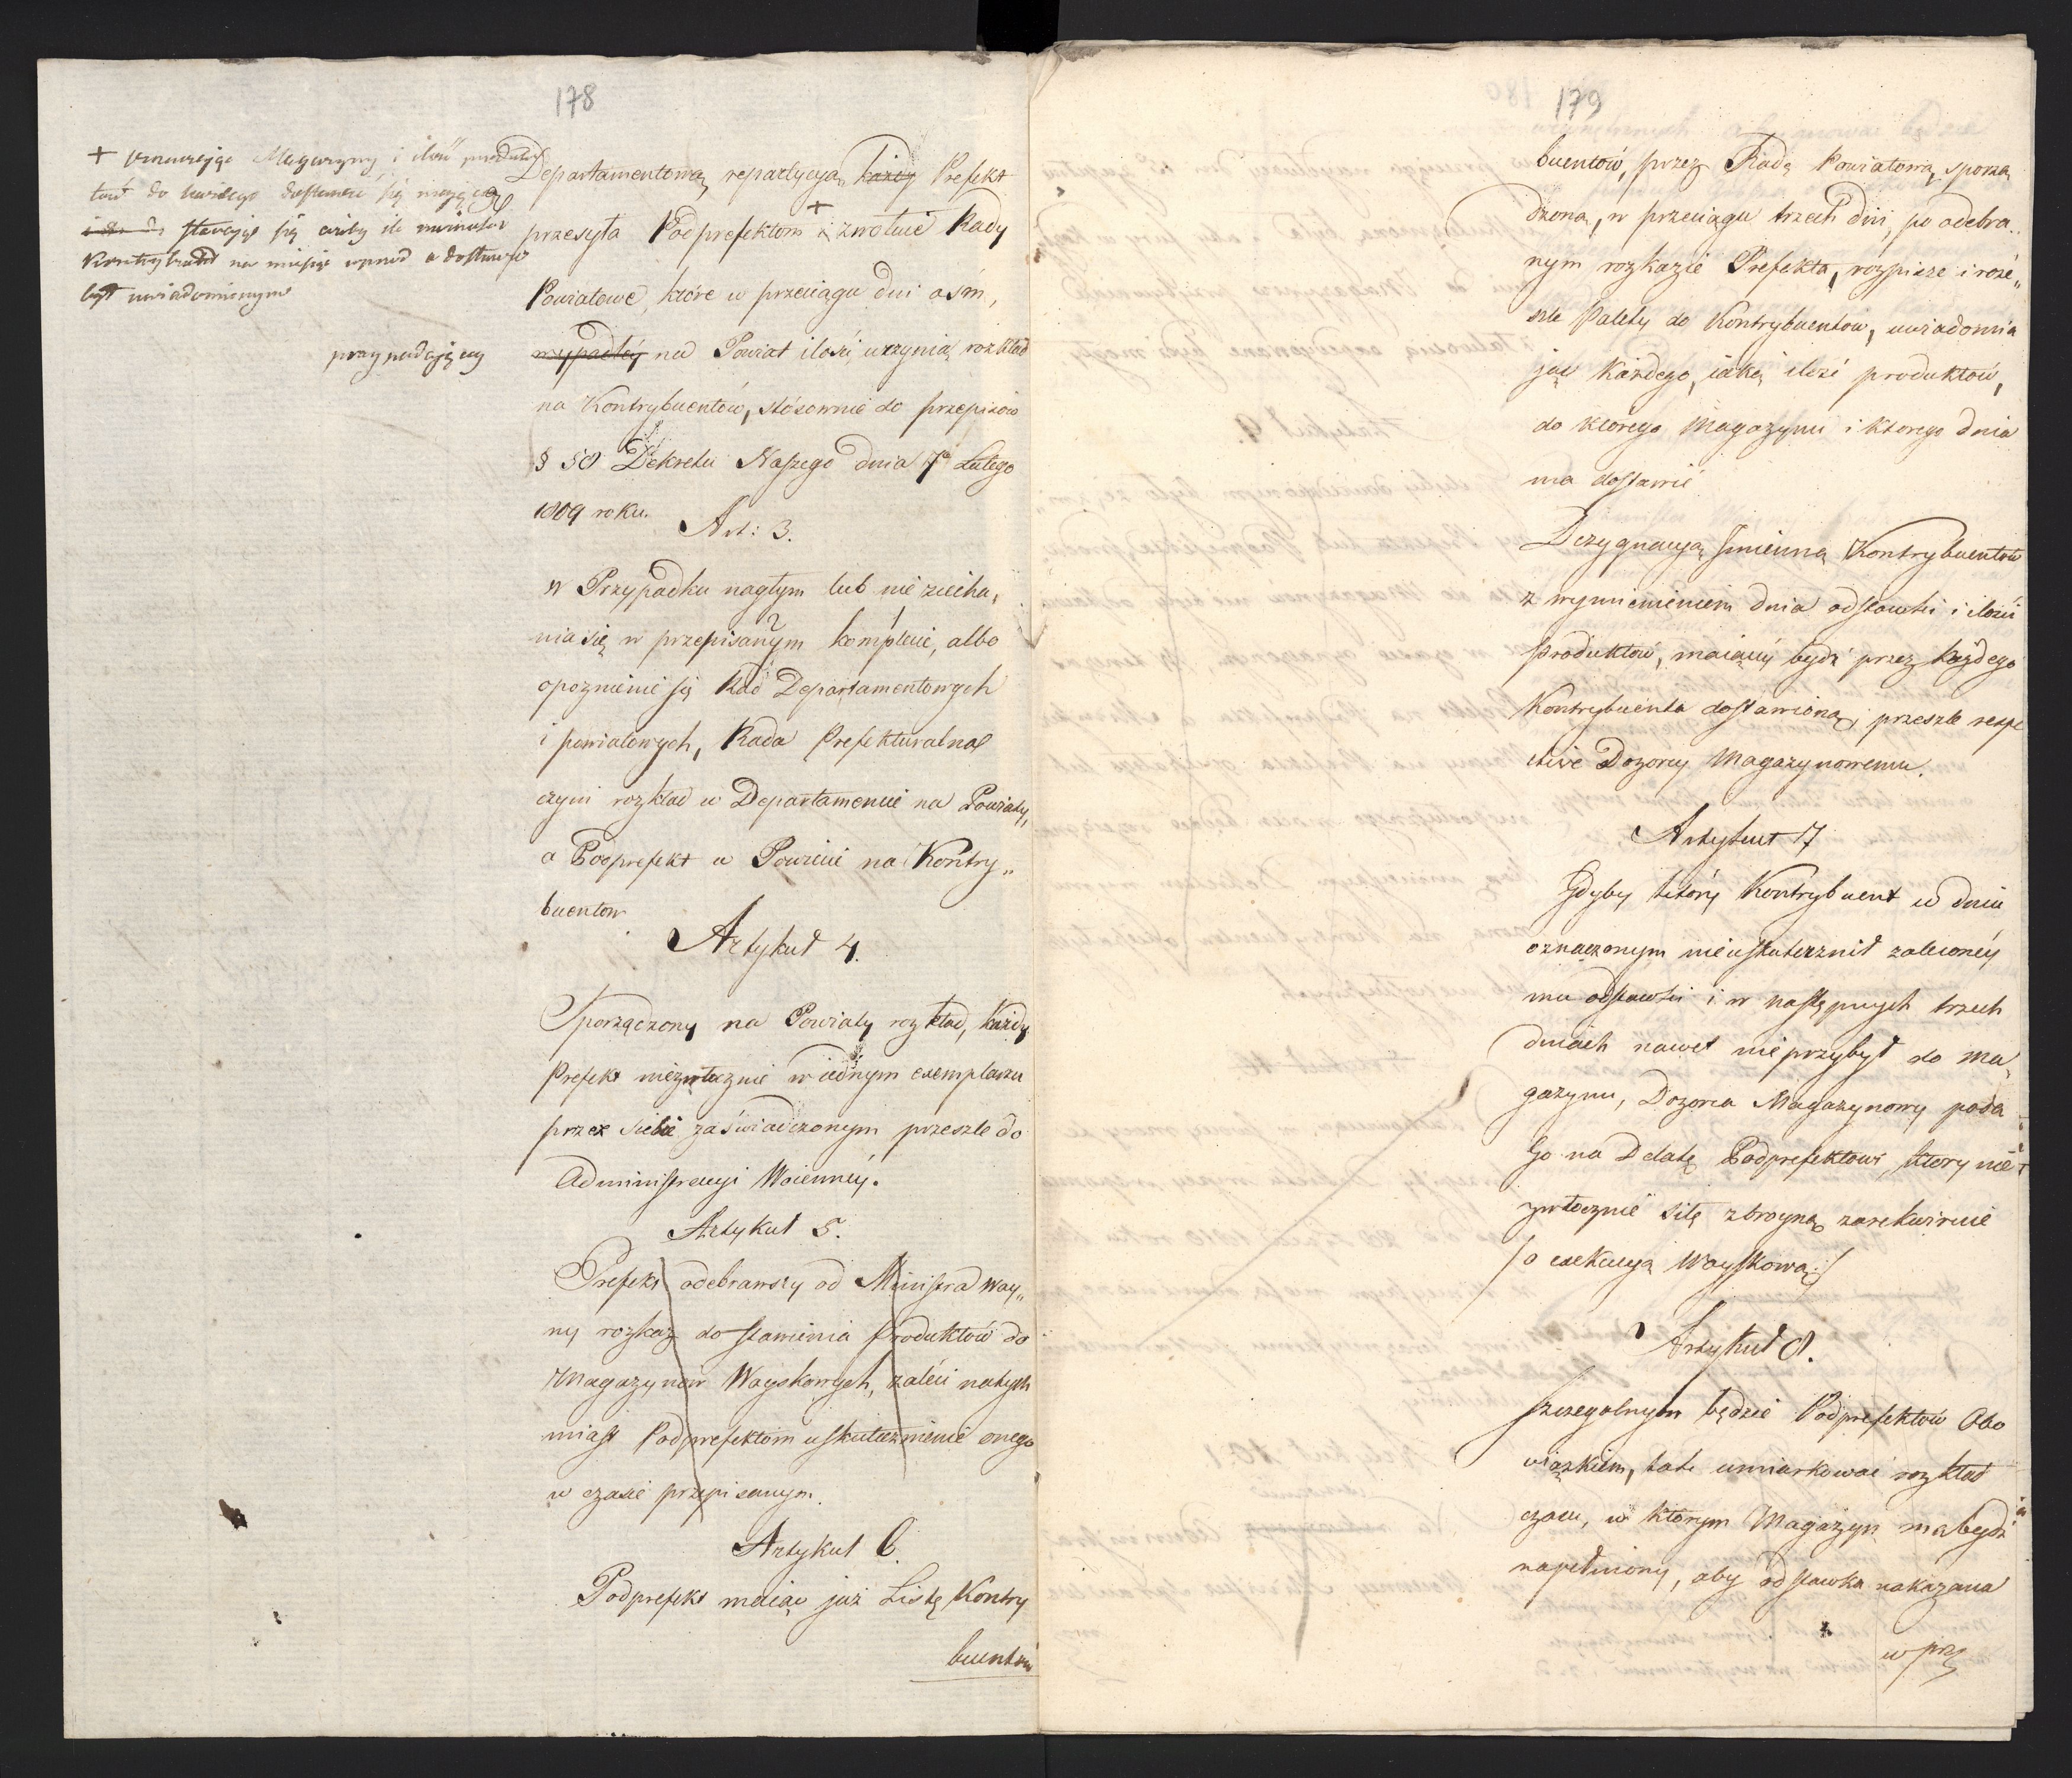 178
+ Magazyny i ilość
do się mające
starając się ażeby ile
na miesiąc wprzód o dostawie
był uwiadomionym
przypadającey
Departamentową repartycyą każdy Prefekt
przesyła Podprefektom + i zwołuie Rady
Powiatowe, które w przeciągu dni ośm,
wypadłéy na Powiat ilości uczynią rozkład
na Kontrybuentów, stósownie do przepisów
§ 58 Dekretu Naszego dnia 7º Lutego
1809 roku.
Art: 3.
w Przypadku nagłym lub nie ziecha„
nia się w przepisanym komplecie, albo
opoznienie się Rad Departamentowych
i powiatowych, Rada Prefekturalna
czyni rozkład w Departamencie na Powiaty,
a Podprefekt w Powiecie na Kontry„
buentow
Artykuł 4.
Sporządzony na Powiaty rozkład, każdy
Prefekt niezwłocznie w iednym exemplarzu
przez siebie zaświadczonym przeszle do
Administracyi Woienney.
Artykuł 5.
Prefekt odebrawszy od Ministra Woy„
ny rozkaz dostawienia Produktów do
Magazynów Woyskowych, zaleci natych
miast Podprefektom uskutecznienie onego
w czasie przepisanym.
Artykuł 6.
Podprefekt maiąc już Listę Kontry
buentów
179
buentów, przez Radę Powiatową sporzą
dzoną, w przeciągu trzech dni, po odebra„
nym rozkazie Prefekta, rozpisze i roze„
szle Palety do Kontrybuentów, uwiadomia
jąc każdego, iaką ilość produktów,
do którego Magazynu i ktorego dnia
ma dostawić
Dezygnacyą Jmienną Kontrybuentów
z wymienieniem dnia odstawki i ilości
produktów, maiącéy bydź przez każdego
Kontrybuenta dostawioną, przeszle respe
ctive Dozorcy Magazynowemu.
Artykuł 7
Gdyby który Kontrybuent w dniu
oznaczonym nieuskutecznił zaleconéy
mu odstawki i w następnych trzech
dniach nawet nieprzybył do Ma„
gazynu, Dozorca Magazynowy poda
Go na Delatę Podprefektowi, który nie
zwłocznie siłę zbroyną zarekwiruie
/o exekucyą Woyskową:/
Artykuł 8.
Szczegolnym będzie Podprefektów Obo
wiązkiem, tak umiarkować rozkład
czasu, w którym Magazyn ma bydź
napełniony, aby odstawka nakazana
w prz